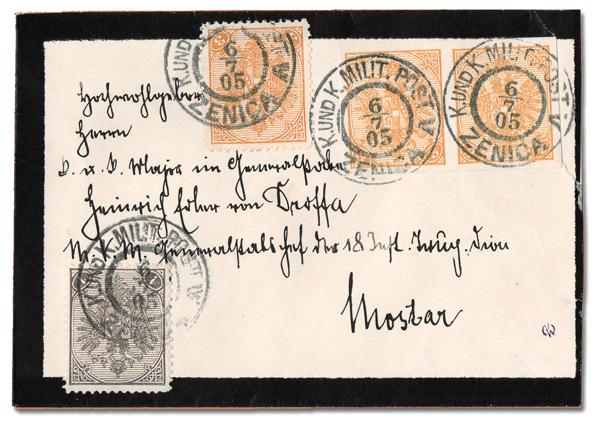 K. UND K. MILIT. POST V
6
7
05
ZENICA
K. UND K. MILIT. POST V
6
7
05
ZENICA
K. UND K. MILIT. POST V
6
7
05
ZENICA
Hochwohlgeboren
Herrn
k. u. k. Major im Generalstabe
Heinrich Edler von
Generalstabschef der 18 Inft.
K. UND K. MILIT. POST V
05
Mostar